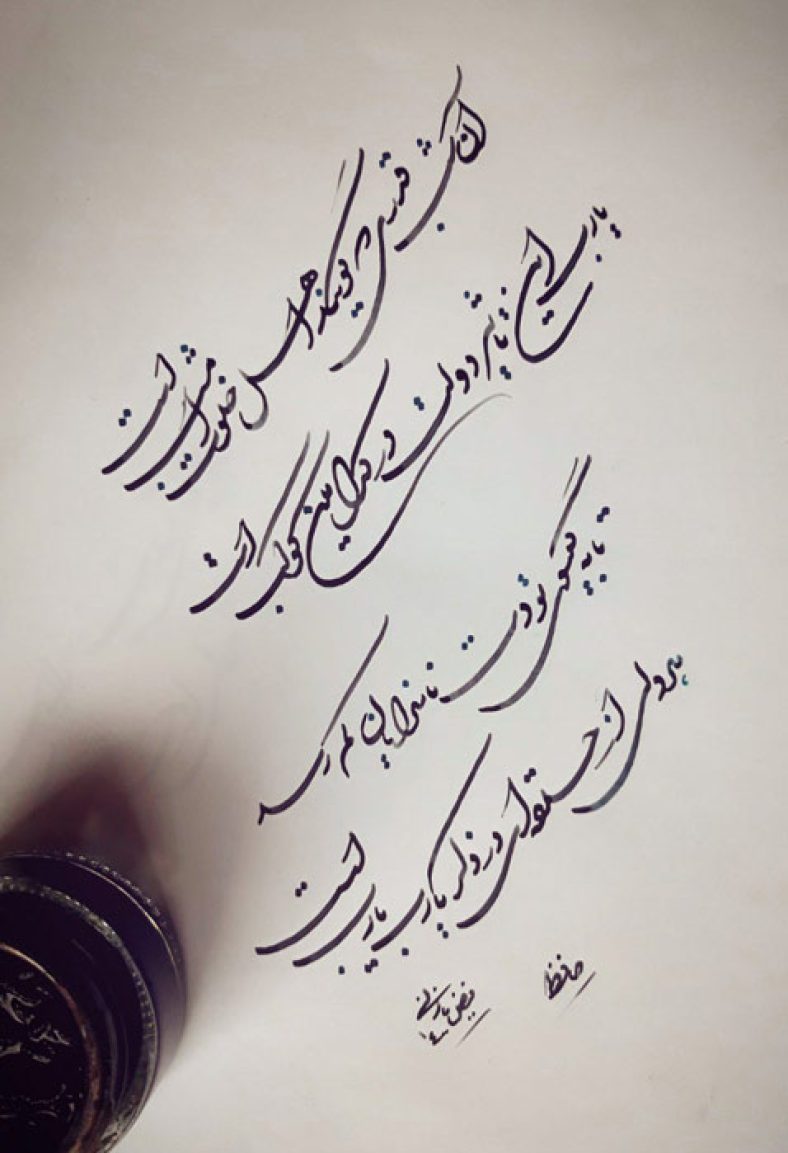 آن شب قدری که گویند اهل خلوت امشب است
یارب این تاثیر دولت در کدامین کوکب است
تا به گیسوی تو دست ناسزایان کم رسد
هر دلی از حلقه‌ای در ذکر یارب یارب است
حافظ